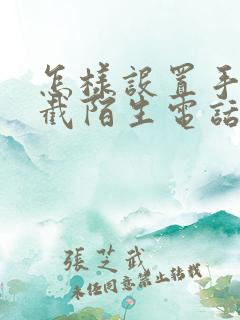 怎樣設置手
截陌生電話
張芝武
未经同意禁止转载